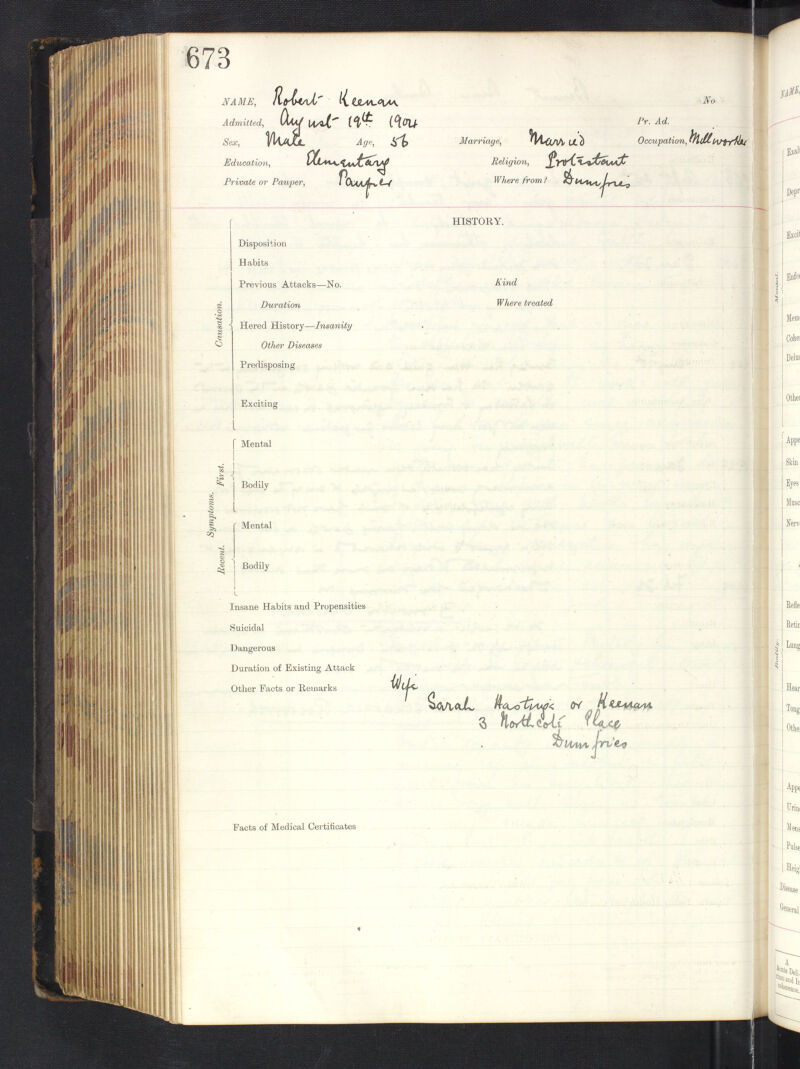 673
NAME, Robert Keenan No
Admitted, August 19th 1904 Pr. Ad.
Sex, Male Age, 56 Marriage, Married Occupation, Millworker
Education, Elementary Religion, Protestant
Private or Pauper, Pauper Where from? Dumfries
HISTORY.
Causation.
Disposition
Habits
Previous Attacks—No. Kind
Duration Where treated
Hered History—Insanity
Other Diseases
Predisposing
Exciting
Symptoms.
First.
Mental
Bodily
Recent.
Mental
Bodily
Insane Habits and Propensities
Suicidal
Dangerous
Duration of Existing Attack
Other Facts or Remarks Wife
Sarah Hastings or Keenan
3 Place
Dumfries
Facts of Medical Certificates
NAME,
Exal
Depr
Excit
Enfe
Mental.
Mem
Cohe
Delu
Othe
Appe
Skin
Eyes
Musc
Nerv
Refle
Retin
Lung
Bodily.
Hear
Tong
Othe
Appe
Urin
Mens
Pulse
Heig
Disease
General
A